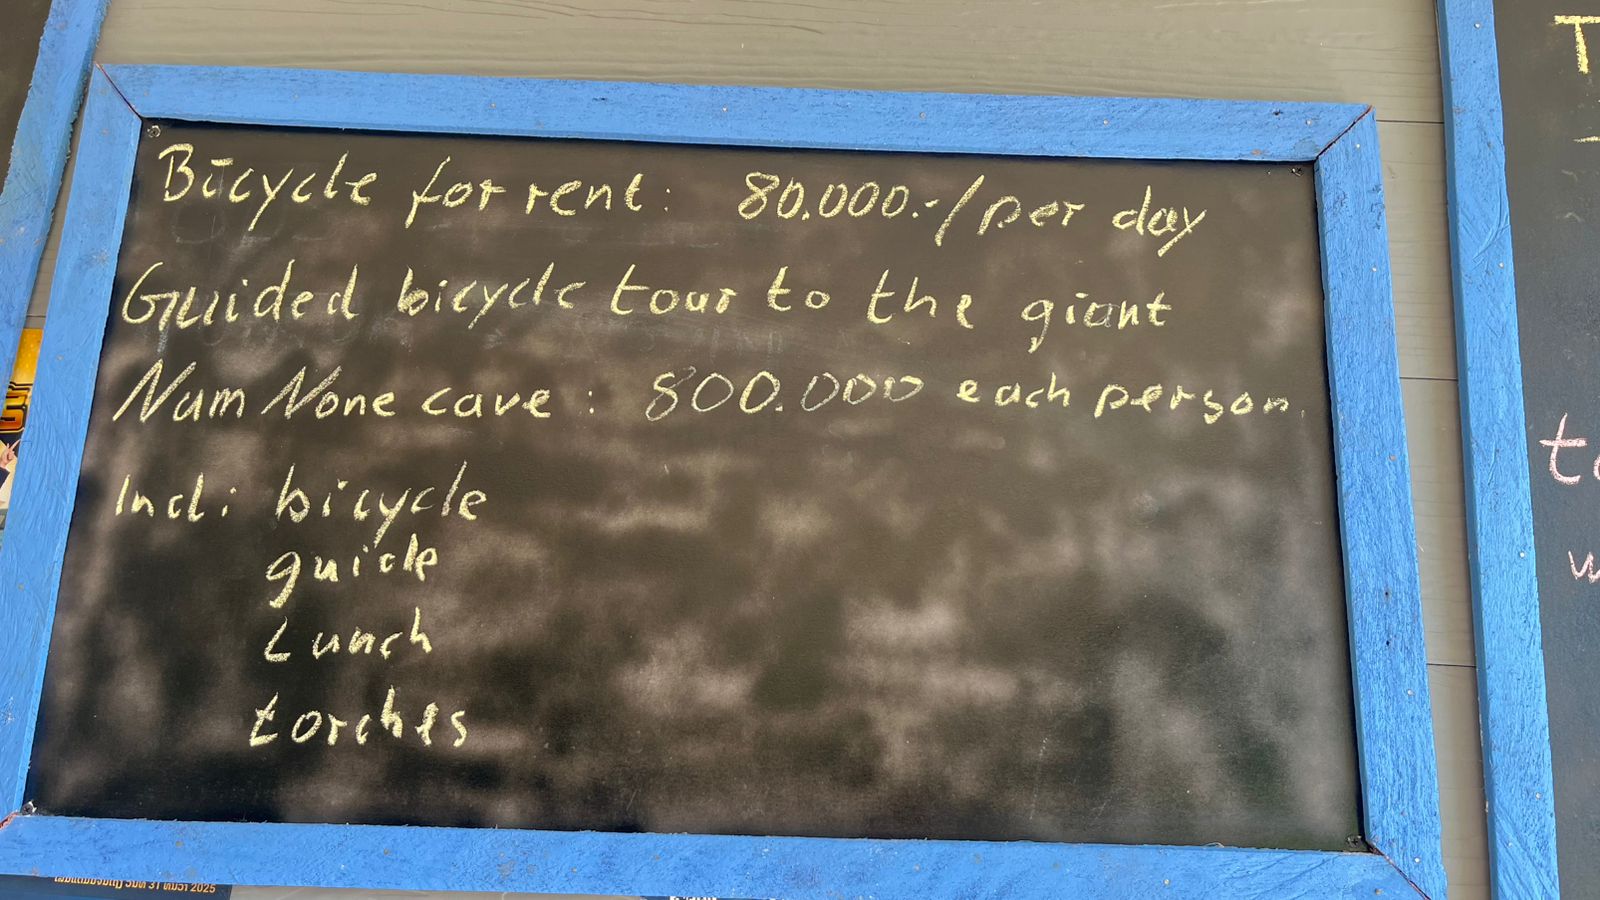 Bicycle for rent: 80.000.-/per day
Guided bicycle tour to the giant
Nam None cave : 800.000 each person.
Incl: bicycle
guide
Lunch
torches
31
2025